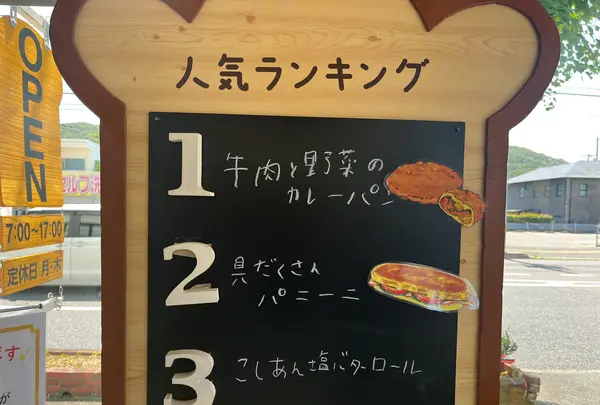 人気ランキング
OPEN
7:00〜17:00
定休日 月・木
セルフ洗
1 牛肉と野菜の
カレーパン
2 具だくさん
パニーニ
3 こしあん塩バターロール
ます
が